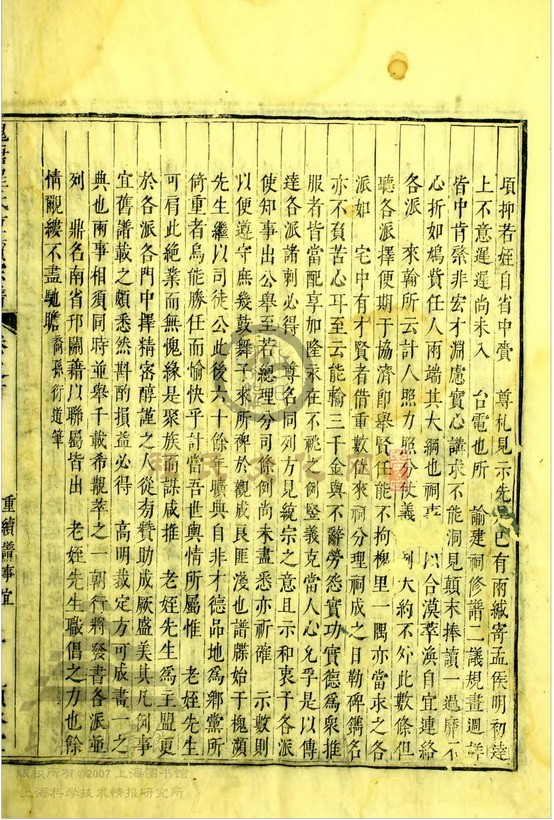 頃抑若姪自省中賫 尊札見示先是已有兩緘寄孟侯明初達
上不意遲遲尚未入 台電也所 諭建祠修譜二議規畫週詳
皆中肯綮非宏才淵慮實心講求不能洞見顛末捧讀一過靡不
心折如鳩貲任人兩端其大綱也祠 以合漠萃渙自宜連絡
各派 來翰所云計人照力照分扙義 列大約不外此數條但
聽各派擇便期于協濟即舉賢任能不拘槐里一隅亦當求之各
派如 宅中有才賢者借重數位來祠分理祠成之日勒碑鐫名
亦不負苦心耳至云能輸三千金與不辭勞怨實功實德為衆推
服者皆當配享加隆永在不祧之例竪義克當人心允乎是以傳
達各派諸刺必得 尊名同列方見統宗之意且示和衷于各派
使知事出公舉至若總理分司條例尚未盡悉亦祈確 示數則
以便遵守庶幾鼓舞子來所裨於觀成良匪淺也譜牒始于槐濒
先生繼以司徒公此後六十餘 曠典自非才德品地為鄉黨所
倚重者烏能勝任而愉快乎計當吾世輿情所屬惟 老姪先生
可肩此絶業而無愧緣是聚族而謀咸推 老姪先生為主盟更
於各派各門中擇精密醇謹之人從旁贊助成厥盛美其凡例事
宜舊譜載之頗悉然斟酌損益必得 高明裁定方可成書一之
典也兩事相須同時並舉千載希覯萃之一朝行將發書各派並
列 鼎名南省邗關藉以聯屬皆出 老姪先生職倡之力也餘
情覼縷不盡馳瞻 裔孫衍道筆
重續譜事宜
版权所有©2007上海图书馆
上海科学技术情报研究所